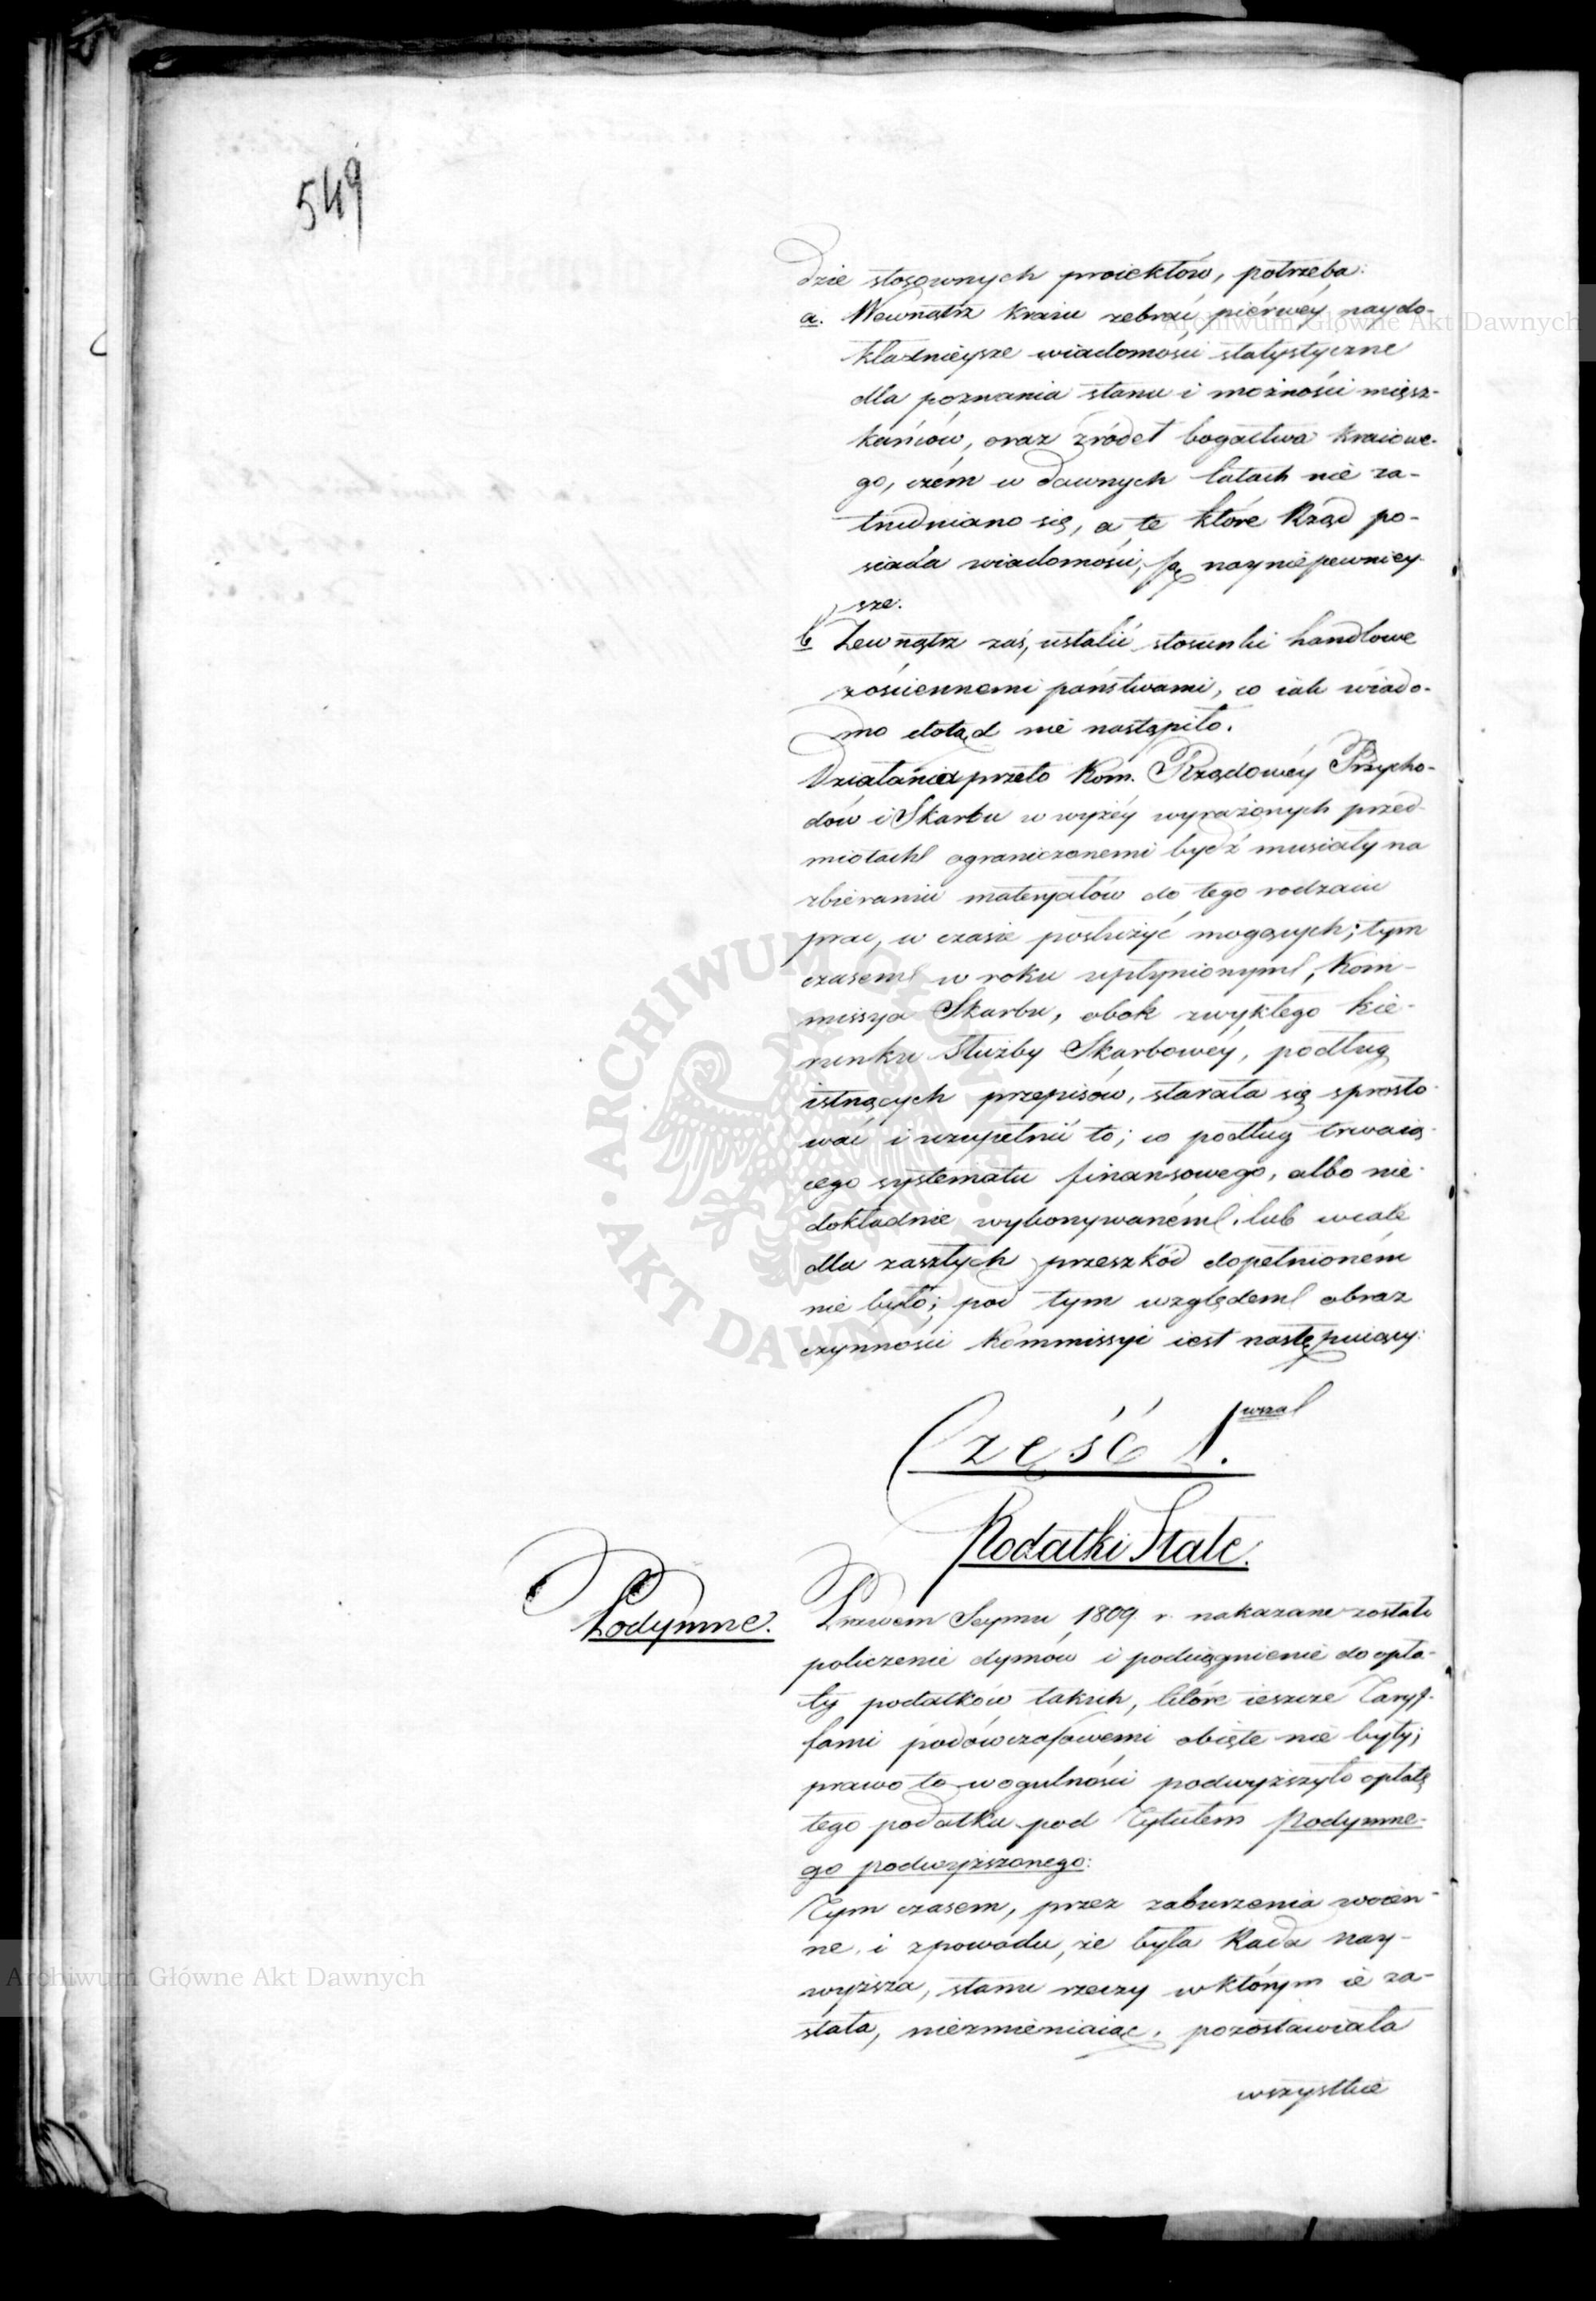 549
dzie stosownych proiektów, potrzeba:
a. Wewnątrz kraiu zebrać piérwéy naydo-
kładnieysze wiadomości statystyczne
dla poznania stanu i możności miesz-
kańców, oraz źródeł bogactwa kraiowe-
go, czém w dawnych latach nie za-
trudniano się, a te które Rząd po-
siada wiadomości, są nayniepewniey-
sze.
b Zewnątrz zaś, ustalić stosunki handlowe
zościennemi państwami, co iak wiado-
mo dotąd nie nastąpiło.
Działania przeto Kom. Rządowéy Przycho-
dów i Skarbu w wyżéy wyrażonych przed-
miotach ograniczonemi bydź musiały na
zbieraniu materyałów do tego rodzaiu
prac, w czasie posłużyć mogących; tym
czasem w roku upłynionym, Kom-
missya Skarbu, obok zwykłego kie-
runku Służby Skarbowéy, podług
istnących przepisów, starała się sprosto-
wać i uzupełnić to; co podług trwaią-
cego systematu finansowego, albo nie-
dokładnie wykonywaném, lub wcale
dla zaszłych przeszkód dopełnioném
nie było; pod tym względem obraz
czynności Kommissyi iest następuiący:
Część 1.wsza
Podatki Stałe.
Podymne.
Prawem Seymu 1809 r. nakazane zostało
policzenie dymów i podciągnienie do opła-
ty podatków takich, które ieszcze Taryf-
fami podówczasowemi obięte nie były;
prawo to wogulności podwyższyło opłatę
tego podatku pod Tytułem Podymne-
go podwyższonego:
Tym czasem, przez zaburzenia woien-
ne, i zpowodu, że była Rada nay-
wyższa, stanu rzeczy wktórym ie za-
stała, niezmieniaiąc, pozostawiała
wszystkie
Archiwum Główne Akt Dawnych
Archiwum Główne Akt Dawnych
ARCHIWUM GŁÓWNE AKT DAWNYCH